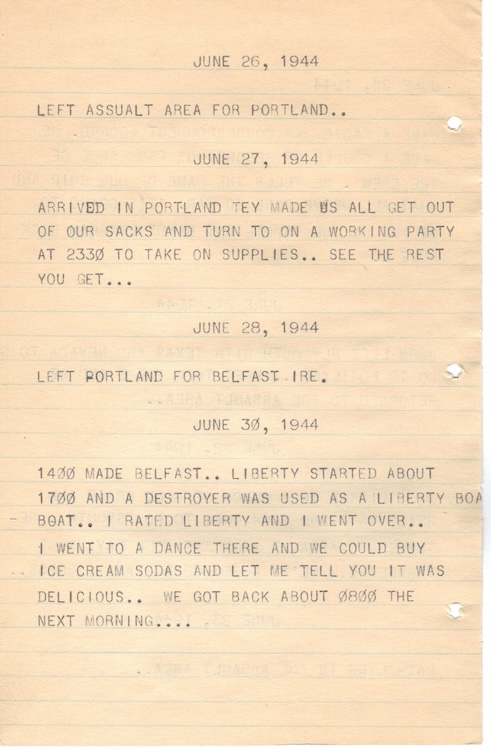 JUNE 26, 1944
LEFT ASSUALT AREA FOR PORTLAND..
JUNE 27, 1944
ARRIVED IN PORTLAND TEY MADE US ALL GET OUT
OF OUR SACKS AND TURN TO ON A WORKING PARTY
AT 233Ø TO TAKE ON SUPPLIES.. SEE THE REST
YOU GET...
JUNE 28, 1944
LEFT PORTLAND FOR BELFAST IRE.
JUNE 3Ø, 1944
14ØØ MADE BELFAST.. LIBERTY STARTED ABOUT
17ØØ AND A DESTROYER WAS USED AS A LIBERTY BOA
BOAT.. I RATED LIBERTY AND I WENT OVER..
I WENT TO A DANCE THERE AND WE COULD BUY
ICE CREAM SODAS AND LET ME TELL YOU IT WAS
DELICIOUS.. WE GOT BACK ABOUT Ø8ØØ THE
NEXT MORNING....